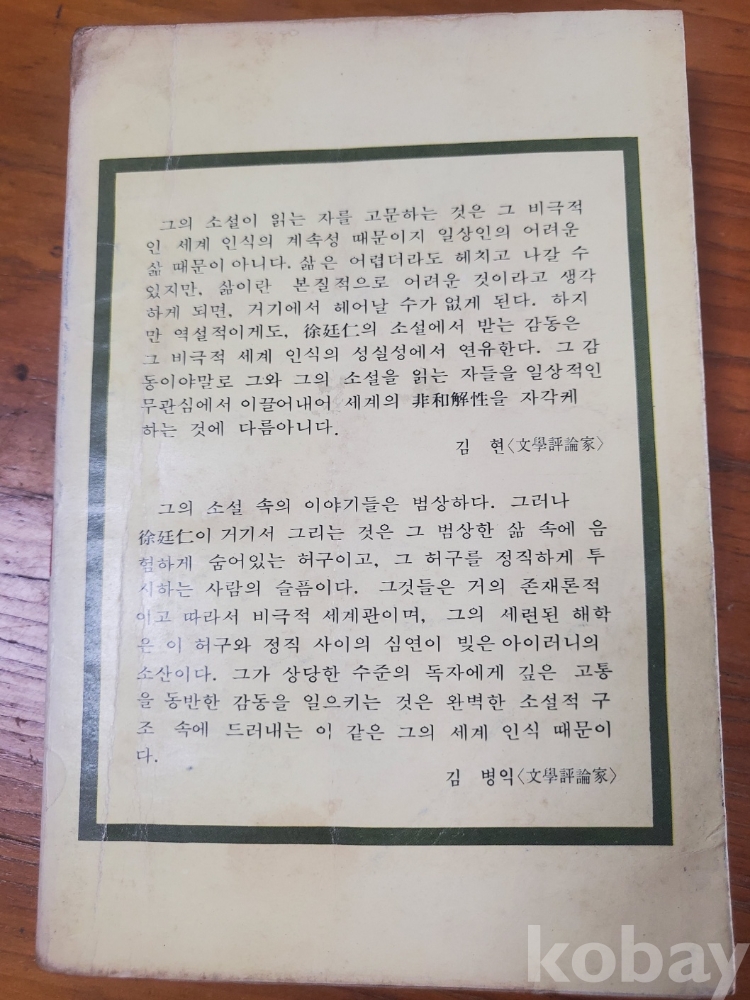 그의 소설이 읽는 자를 고문하는 것은 그 비극적
인 세계 인식의 계속성 때문이지 일상인의 어려운
삶 때문이 아니다. 삶은 어렵더라도 헤치고 나갈 수
있지만, 삶이란 본질적으로 어려운 것이라고 생각
하게 되면, 거기에서 헤어날 수가 없게 된다. 하지
만 역설적이게도, 徐廷仁의 소설에서 받는 감동은
그 비극적 세계 인식의 성실성에서 연유한다. 그 감
동이야말로 그와 그의 소설을 읽는 자들을 일상적인
무관심에서 이끌어내어 세계의 非和解性을 자각케
하는 것에 다름아니다.
김 현〈文學評論家〉
그의 소설 속의 이야기들은 범상하다. 그러나
徐廷仁이 거기서 그리는 것은 그 범상한 삶 속에 음
험하게 숨어있는 허구이고, 그 허구를 정직하게 투
시하는 사람의 슬픔이다. 그것들은 거의 존재론적
이고 따라서 비극적 세계관이며, 그의 세련된 해학
은 이 허구와 정직 사이의 심연이 빚은 아이러니의
소산이다. 그가 상당한 수준의 독자에게 깊은 고통
을 동반한 감동을 일으키는 것은 완벽한 소설적 구
조 속에 드러내는 이 같은 그의 세계 인식 때문이
다.
김 병익〈文學評論家〉
kobay